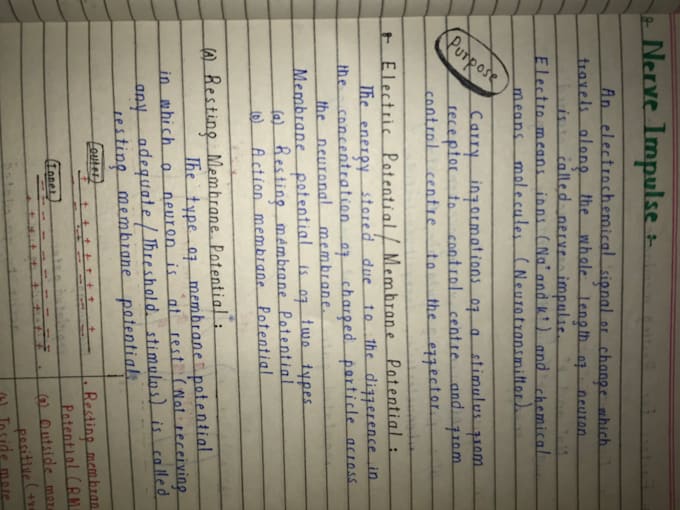 * Nerve Impulse :-
An electrochemical signal or change which
travels along the whole length of neuron
is called nerve impulse.
Electro means ions (Na⁺ and K⁺) and chemical
means molecules (Neurotransmittor).
Purpose
Carry informations of a stimulus from
receptor to control centre and from
control centre to the effector.
* Electric Potential / Membrane Potential :
The energy stored due to the difference in
the concentration of charged particle across
the neuronal membrane.
Membrane potential is of two types
(a) Resting membrane Potential
(b) Action membrane Potential
(a) Resting Membrane Potential :
The type of membrane potential
in which a neuron is at rest (Not receiving
any adequate / Threshold stimulus) is called
resting membrane potential.
Outer
+ + + + + + + +
Inner
- - - - - - - -
+ + + + + + + +
Resting membran
Potential (RM
(a) Outside mor
positive (+v
(b) Inside more